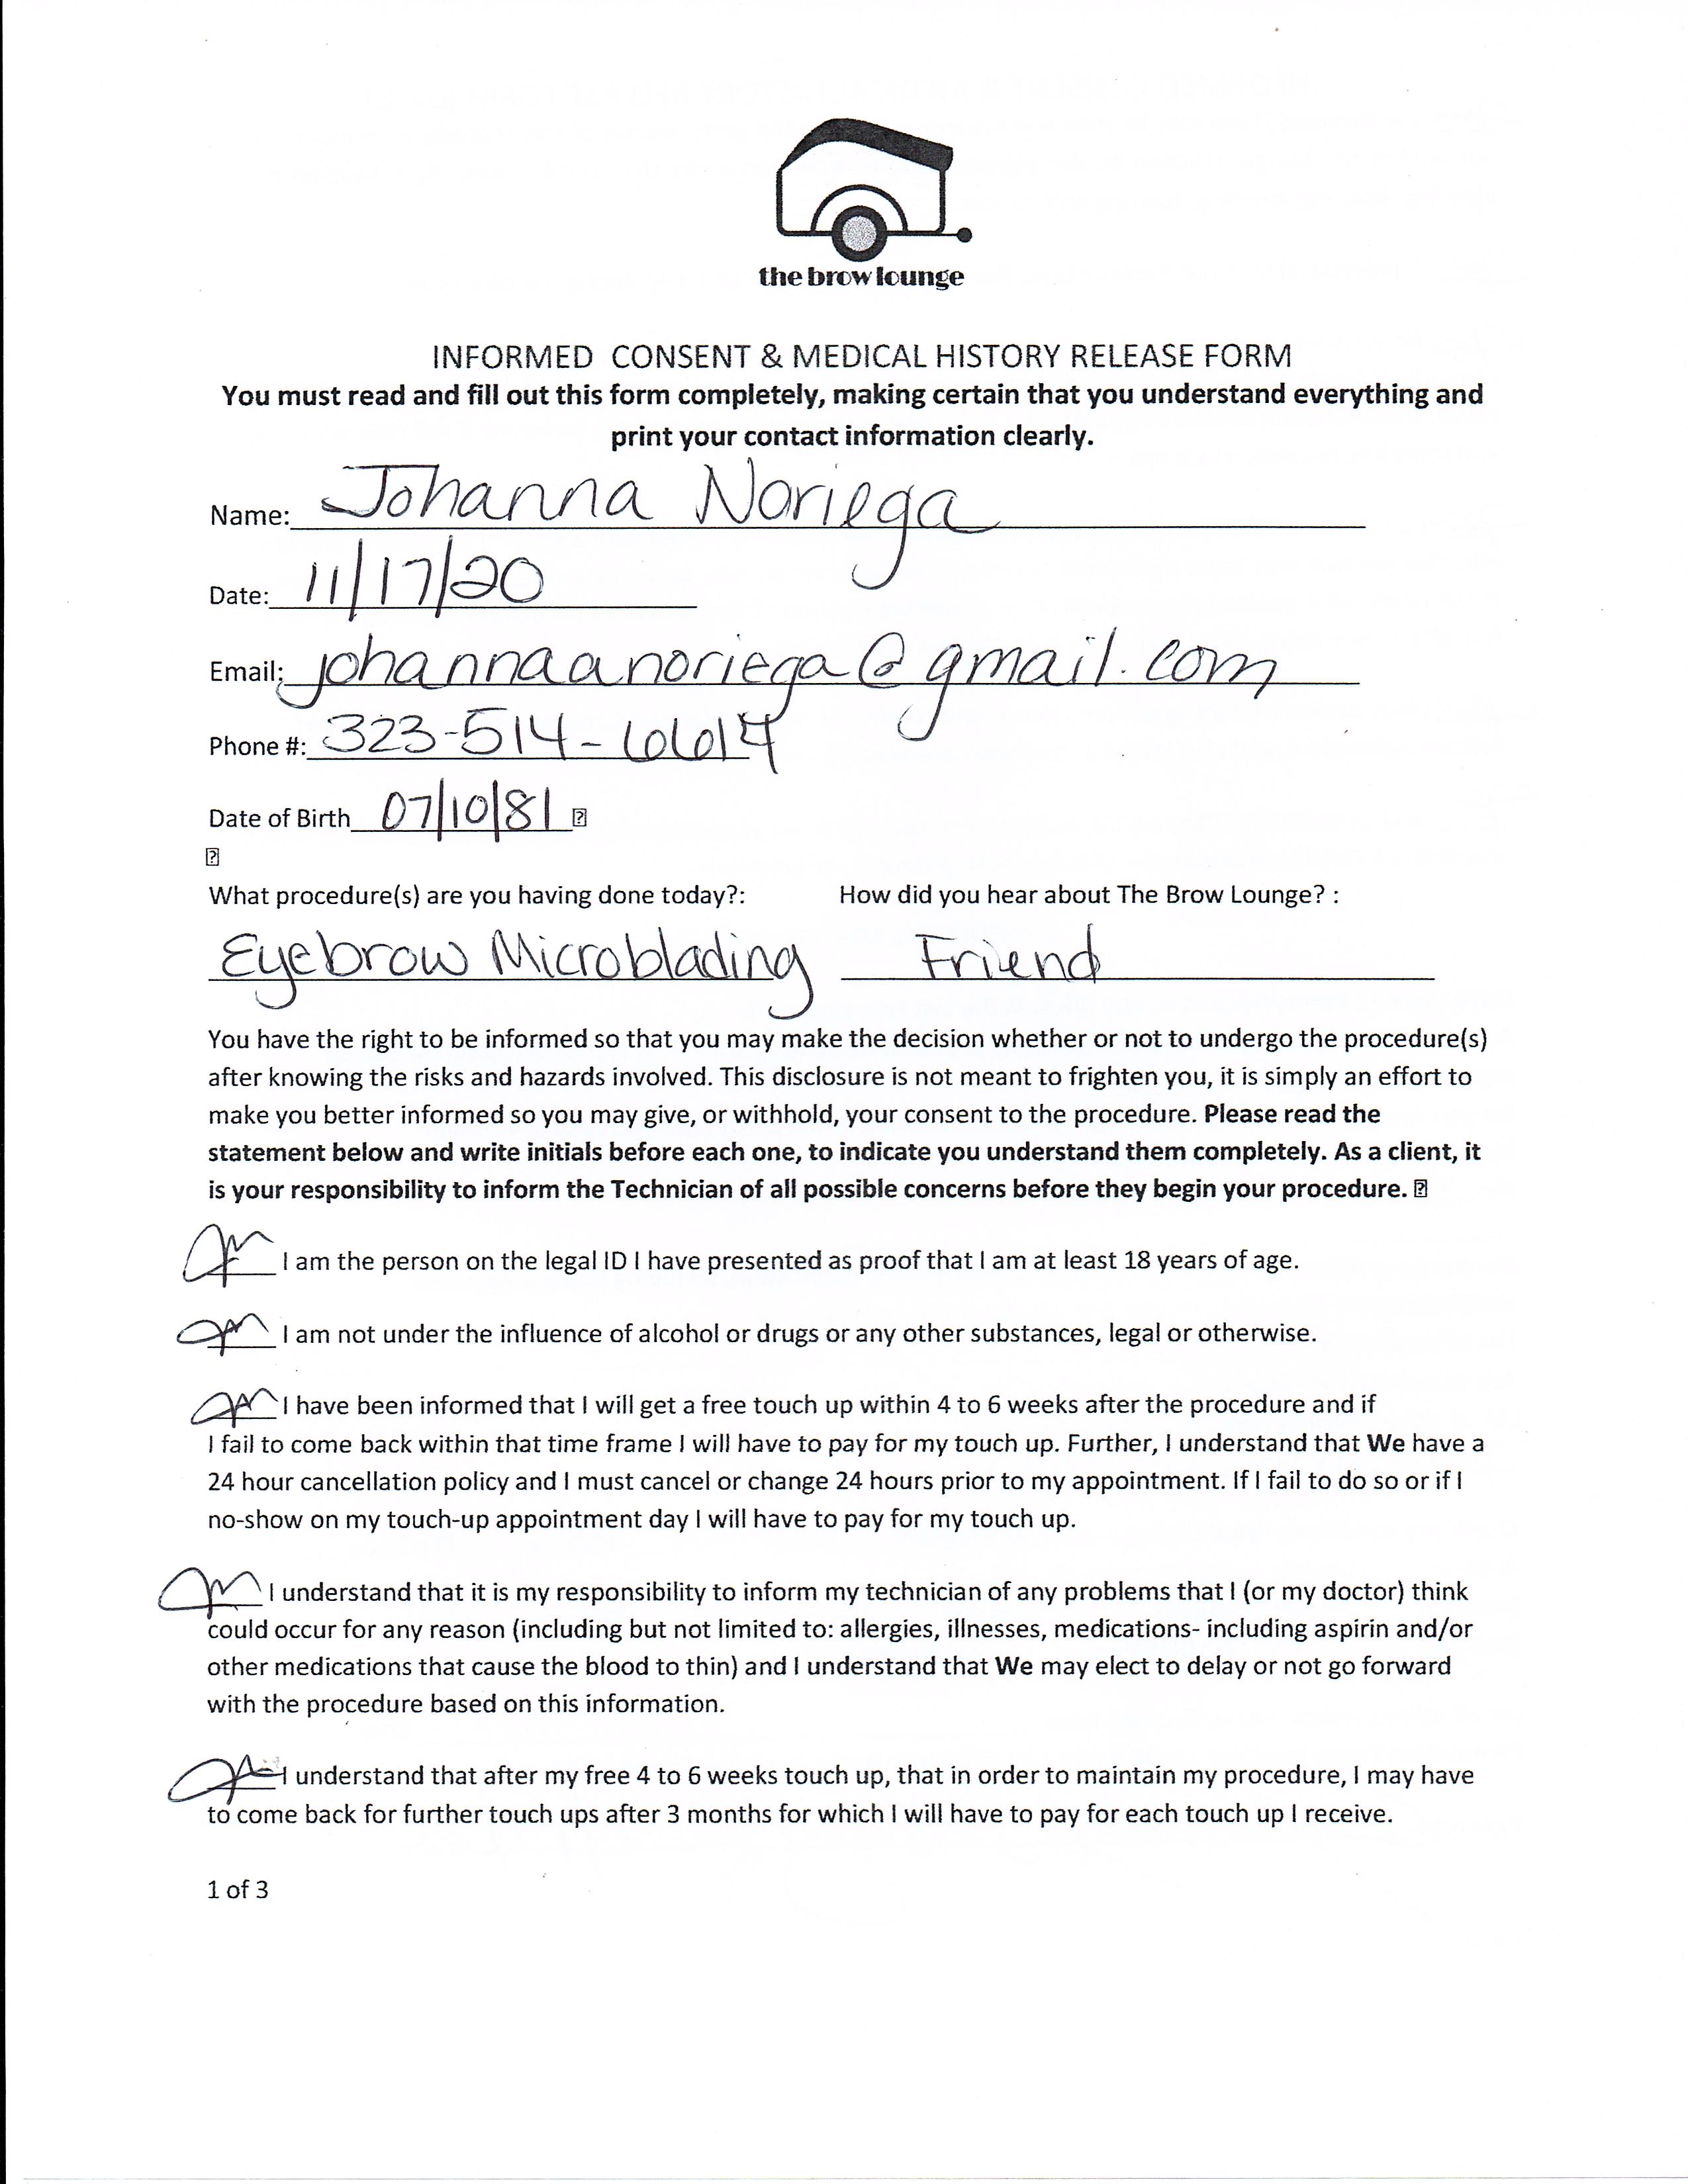 the brow lounge
INFORMED CONSENT & MEDICAL HISTORY RELEASE FORM
You must read and fill out this form completely, making certain that you understand everything and
print your contact information clearly.
Name: Johanna Noriega
Date: 11/17/20
Email: johannaanoriega@gmail.com
Phone #: 323-514-6614
Date of Birth 07/10/81 ?
?
What procedure(s) are you having done today?: How did you hear about The Brow Lounge? :
Eyebrow Microblading Friend
You have the right to be informed so that you may make the decision whether or not to undergo the procedure(s)
after knowing the risks and hazards involved. This disclosure is not meant to frighten you, it is simply an effort to
make you better informed so you may give, or withhold, your consent to the procedure. Please read the
statement below and write initials before each one, to indicate you understand them completely. As a client, it
is your responsibility to inform the Technician of all possible concerns before they begin your procedure. ?
I am the person on the legal ID I have presented as proof that I am at least 18 years of age.
I am not under the influence of alcohol or drugs or any other substances, legal or otherwise.
I have been informed that I will get a free touch up within 4 to 6 weeks after the procedure and if
I fail to come back within that time frame I will have to pay for my touch up. Further, I understand that We have a
24 hour cancellation policy and I must cancel or change 24 hours prior to my appointment. If I fail to do so or if I
no-show on my touch-up appointment day I will have to pay for my touch up.
I understand that it is my responsibility to inform my technician of any problems that I (or my doctor) think
could occur for any reason (including but not limited to: allergies, illnesses, medications- including aspirin and/or
other medications that cause the blood to thin) and I understand that We may elect to delay or not go forward
with the procedure based on this information.
I understand that after my free 4 to 6 weeks touch up, that in order to maintain my procedure, I may have
to come back for further touch ups after 3 months for which I will have to pay for each touch up I receive.
1 of 3